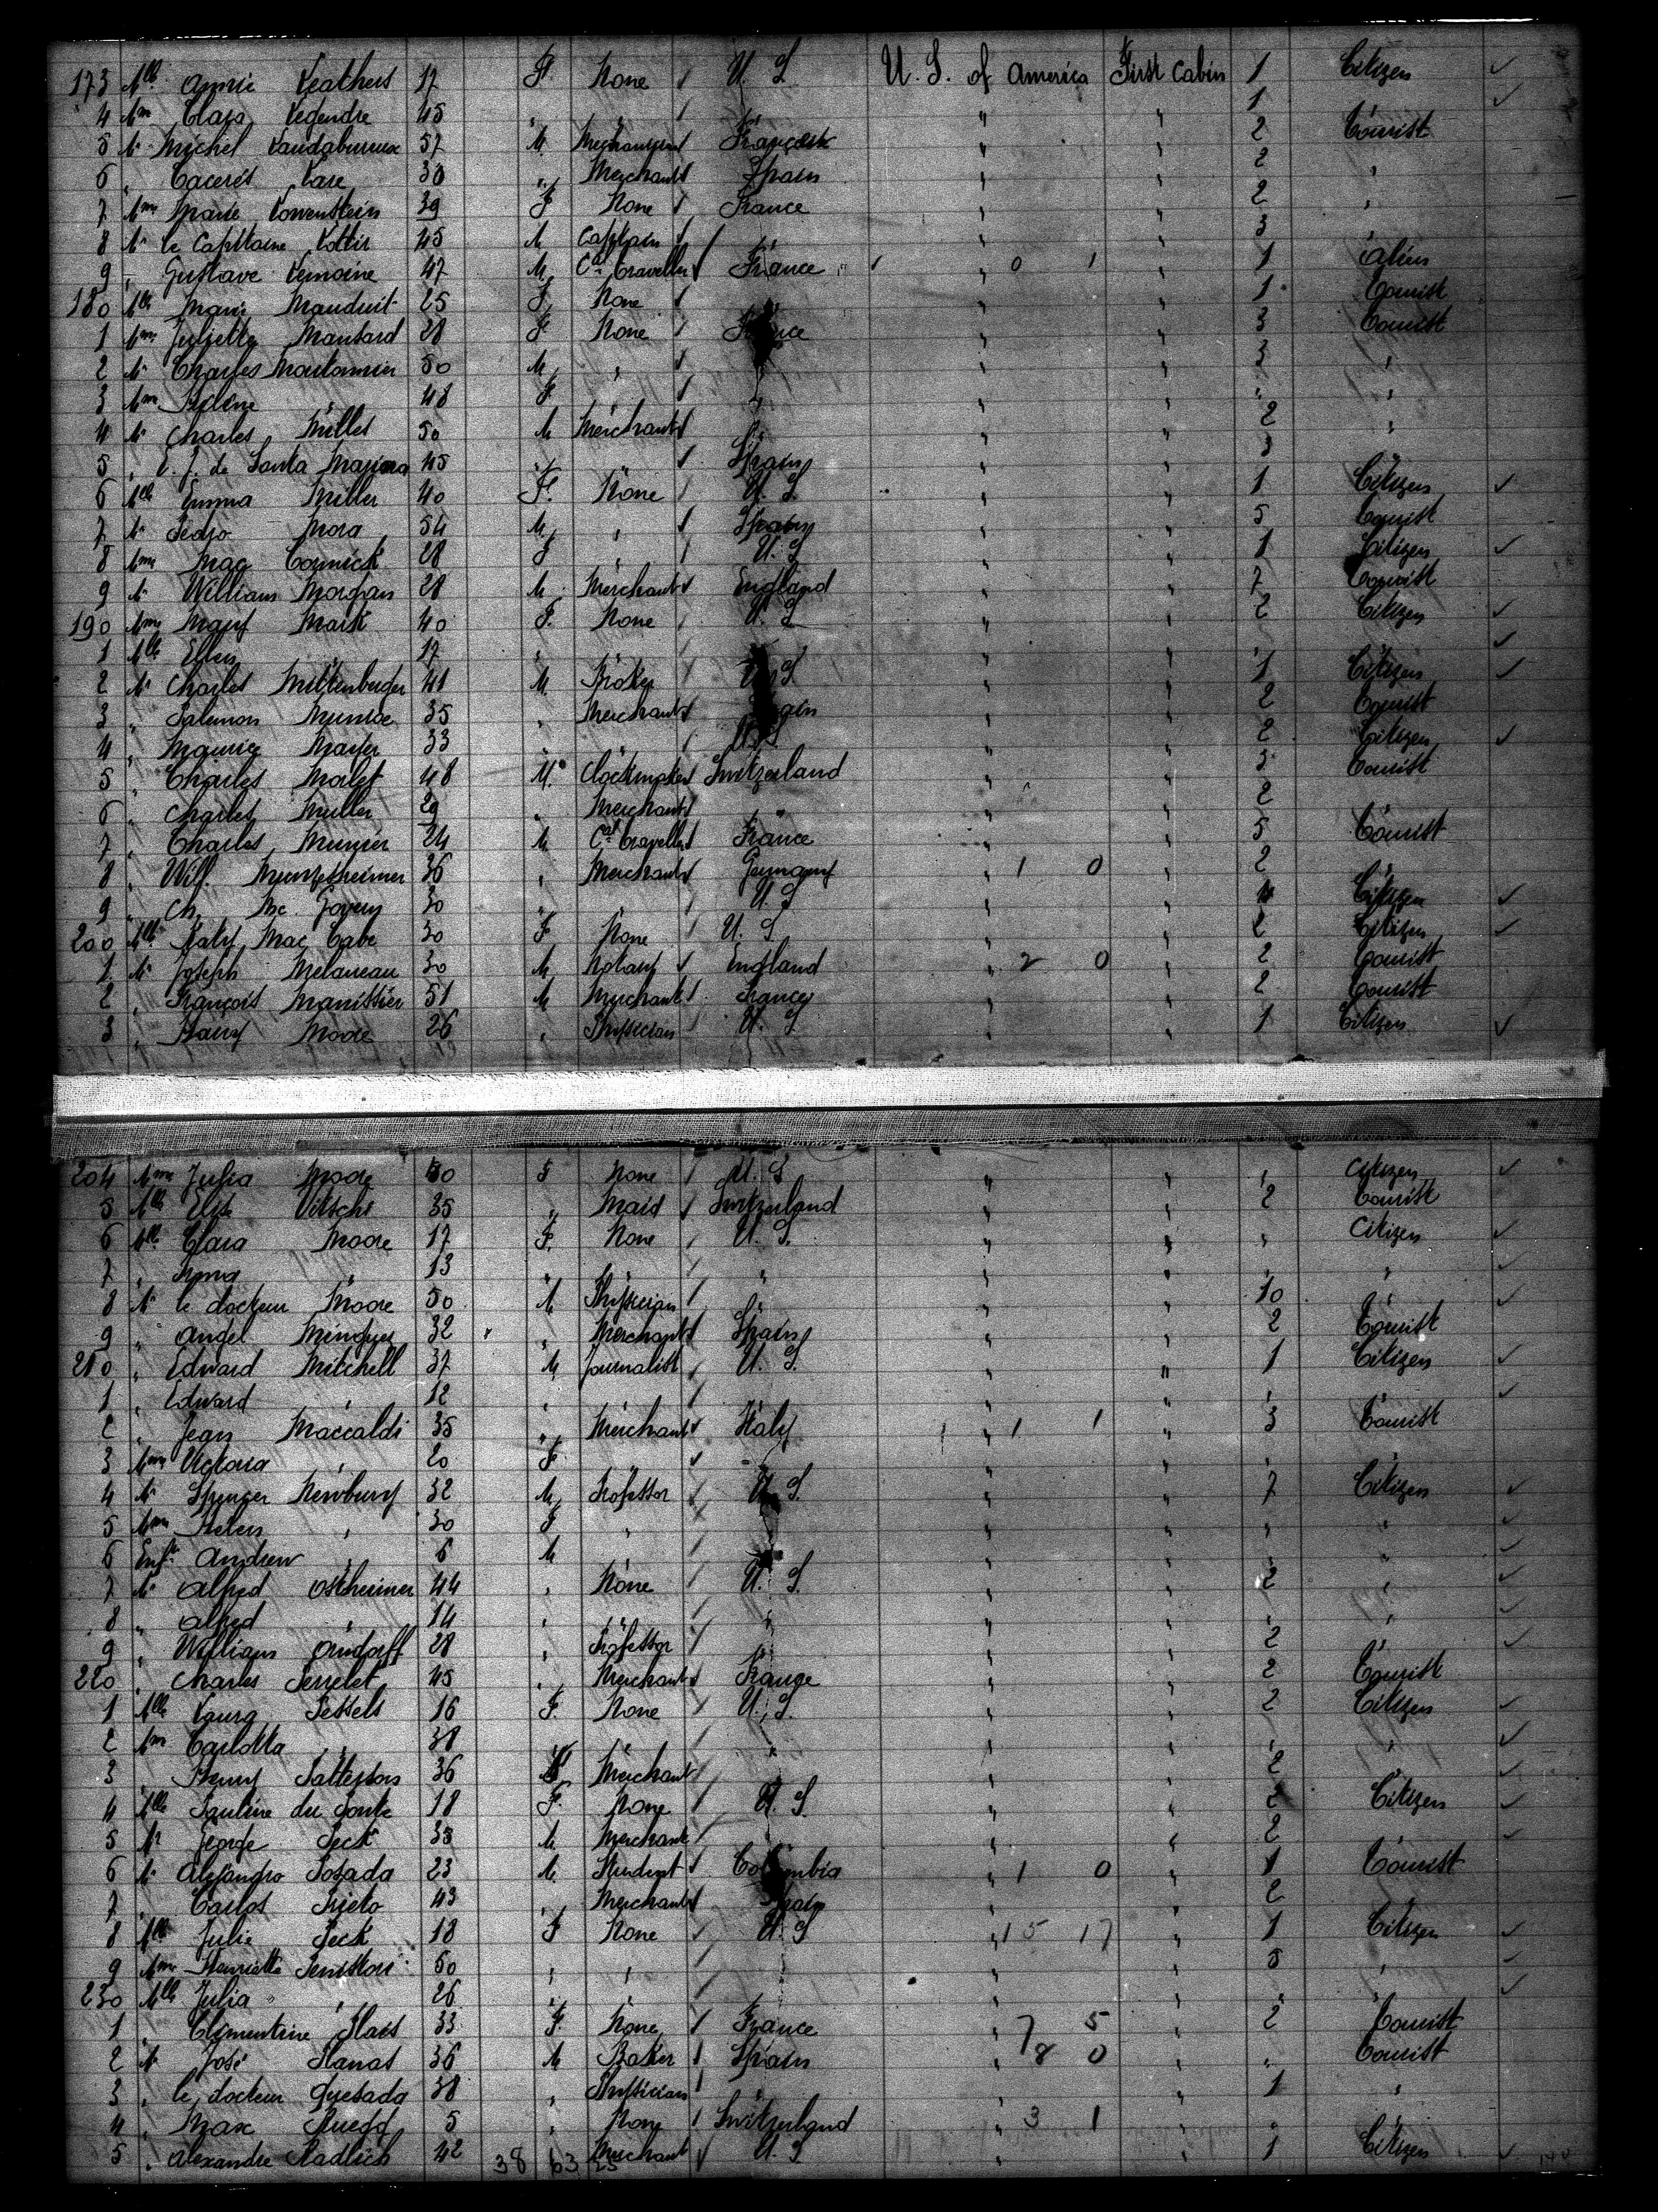 173 Mlle Annie Leathers 17 F. None / U. S. U. S. of America First Cabin 1 Citizen ✓
4 Mme Clara Legendre 45 " " / " " 1 ✓
5 Mr Michel 57 M. / " " 2 Tourist
6 " Caceres Lare 30 " Merchant / Spain " " 2 "
7 Mme Marie Lowenstein 39 F None / France " " 2 "
8 Mr le Capitaine 45 M Captain / " " 3 "
9 " Gustave Lemoine 47 M. Cal Traveller / France " 0 1 " 1 Alien
180 Mlle Marie Mauduit 25 F. None / " " 1 Tourist
1 Mme Juliette Mansard 28 F None / France " " 3 Tourist
2 Mr Charles 50 M. " / " " 3 "
3 Mme Hélène " 48 F. / " " " "
4 Mr Charles Milles 50 M Merchant / " " 2 "
5 " E. J. de Santa Marina 45 " / Spain " " 3
6 Mlle Emma Miller 40 F. None / U. S. " " 1 Citizen ✓
7 Mr Pedro Mora 54 M. " / Spain " " 5 Tourist
8 Mme Mac Cormick 28 F " / U. S " " 1 Citizen ✓
9 Mr William Morgan 28 M. Merchant / England " " 7 Tourist
190 Mme Mary Mark 40 F. None / U. S " " 2 Citizen ✓
1 Mlle Ellen " 17 " " " " ✓
2 Mr Charles Miltenberger 41 M. Broker U. S " " 1 Citizen ✓
3 " Salemon 35 " Merchant / Spain " " 2 Tourist
4 " Maurice Mayer 33 / U. S. " " 2 Citizen ✓
5 " Charles Morlet 48 M. Clockmaker Switzerland " " 3 Tourist
6 " Charles Muller 29 " Merchant / " " " 2
7 " Charles Munier 24 M Cal Traveller / France " " 5 Tourist
8 " Will. 36 " Merchant / Germany " 1 0 " 2 "
9 " Ch. Mc. 30 " " U. S " " 4 Citizen ✓
200 Mlle Katy Mac Cabe 30 F None / U. S. " " 2 Citizen ✓
1 Mr Joseph Melaneau 30 M Notary ✓ England " 2 0 " 2 Tourist
2 " François Manissier 51 M Merchant / France " " 2 Tourist
3 " Harry Moore 26 " Physician U. S " " 1 Citizen ✓
204 Mme Julia Moore 50 F None / U. S " " " Citizen ✓
5 Mlle Elise Vitschi 35 " Maid / Switzerland " " 2 Tourist
6 Mlle Clara Moore 17 F. None / U. S. " " " Citizen ✓
7 " Anna " 13 " " " " " " " ✓
8 Mr le docteur Moore 50 M Physician / " " " 10 " ✓
9 " Angel 32 " Merchant / Spain " " 2 Tourist
210 " Edward Mitchell 37 M Journalist / U. S. " " 1 Citizen ✓
1 " Edward " 12 " / " " " ✓
2 " Jean Maccaldi 35 " Merchant ✓ Italy " 1 1 " 3 Tourist
3 Mme Victoria " 20 F. ✓ " " "
4 Mr Spencer Newbury 32 M. Professor / U. S. " " 7 Citizen ✓
5 Mme Helen " 30 F " / " " " " ✓
6 Enft Andrew " 6 M / " " " ✓
7 Mr Alfred Ostheimer 44 " None / U. S. " " 2 " ✓
8 " Alfred " 14 " / " " " " " ✓
9 " William Orndorff 28 " Professor / " " 2 " ✓
220 " Charles Perrelet 45 " Merchant / France " " 2 Tourist
1 Mlle Laura Pessels 16 F. None / U. S. " " 2 Citizen ✓
2 Mme Carlotta " 38 / " " " " " ✓
3 " Henry Patterson 36 Merchant / " " 2 ✓
4 Mlle Pauline du Ponte 18 F. None / U. S. " " 2 Citizen ✓
5 Mr George Peck 35 M. Merchant / " " 2 ✓
6 Mr Alejandro Posada 23 M. Student / Columbia " 1 0 " 1 Tourist
7 " Carlos Prieto 43 " Merchant / Spain " " 2 "
8 Mlle Julie Peck 18 F None / U. S " 15 17 " 1 Citizen ✓
9 Mme Henriette 50 " " / " " 5 " ✓
230 Mlle Julia " 26 " " / " " " " ✓
1 " Clementine Plais 33 F. None / France " 7 5 " 2 Tourist
2 Mr José Planas 36 M Baker / Spain " 8 0 " " Tourist
3 " le docteur Quesada 38 " Physician / " " " 1 "
4 " Max Ruegg 5 " None / Switzerland " 3 1 " "
5 " Alexandre Radlich 42 38 63 25 Merchant / U. S. " " 1 Citizen ✓